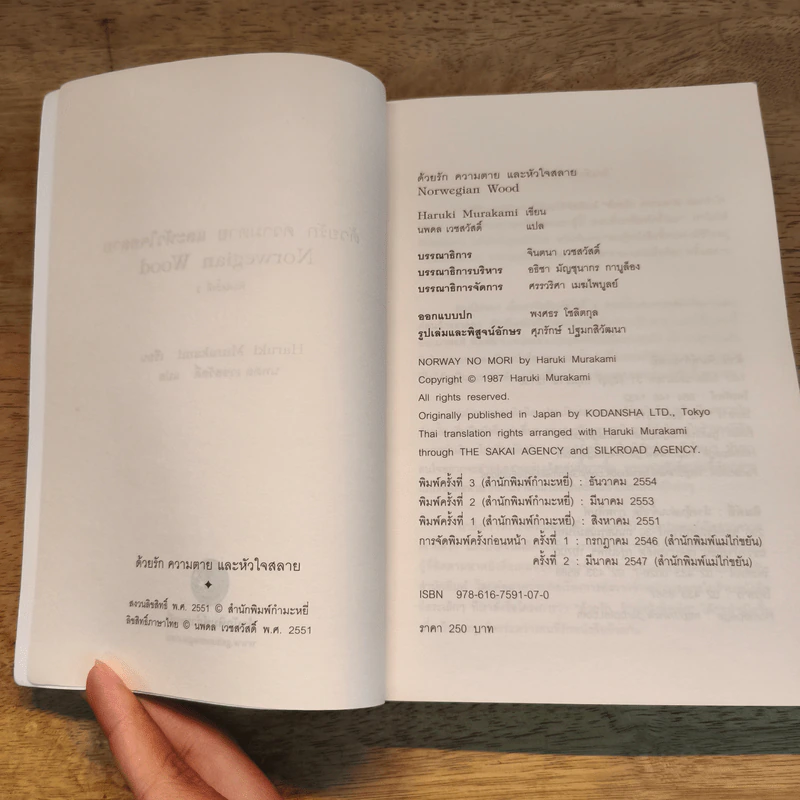 ด้วยรัก ความตาย และหัวใจสลาย
สงวนลิขสิทธิ์ พ.ศ. 2551 © สำนักพิมพ์กำมะหยี่
ลิขสิทธิ์ภาษาไทย © นพดล เวชสวัสดิ์ พ.ศ. 2551
ด้วยรัก ความตาย และหัวใจสลาย
Norwegian Wood
Haruki Murakami เขียน
นพดล เวชสวัสดิ์ แปล
บรรณาธิการ จินตนา เวชสวัสดิ์
บรรณาธิการบริหาร อธิชา มัญชุนากร กาบูล็อง
บรรณาธิการจัดการ ศรรวริศา เมฆไพบูลย์
ออกแบบปก พงศธร โชลิตกุล
รูปเล่มและพิสูจน์อักษร ศุภรักษ์ ปฐมกสิวัฒนา
NORWAY NO MORI by Haruki Murakami
Copyright © 1987 Haruki Murakami
All rights reserved.
Originally published in Japan by KODANSHA LTD., Tokyo
Thai translation rights arranged with Haruki Murakami
through THE SAKAI AGENCY and SILKROAD AGENCY.
พิมพ์ครั้งที่ 3 (สำนักพิมพ์กำมะหยี่) : ธันวาคม 2554
พิมพ์ครั้งที่ 2 (สำนักพิมพ์กำมะหยี่) : มีนาคม 2553
พิมพ์ครั้งที่ 1 (สำนักพิมพ์กำมะหยี่) : สิงหาคม 2551
การจัดพิมพ์ครั้งก่อนหน้า ครั้งที่ 1 : กรกฎาคม 2546 (สำนักพิมพ์แม่ไก่ขยัน)
ครั้งที่ 2 : มีนาคม 2547 (สำนักพิมพ์แม่ไก่ขยัน)
ISBN 978-616-7591-07-0
ราคา 250 บาท